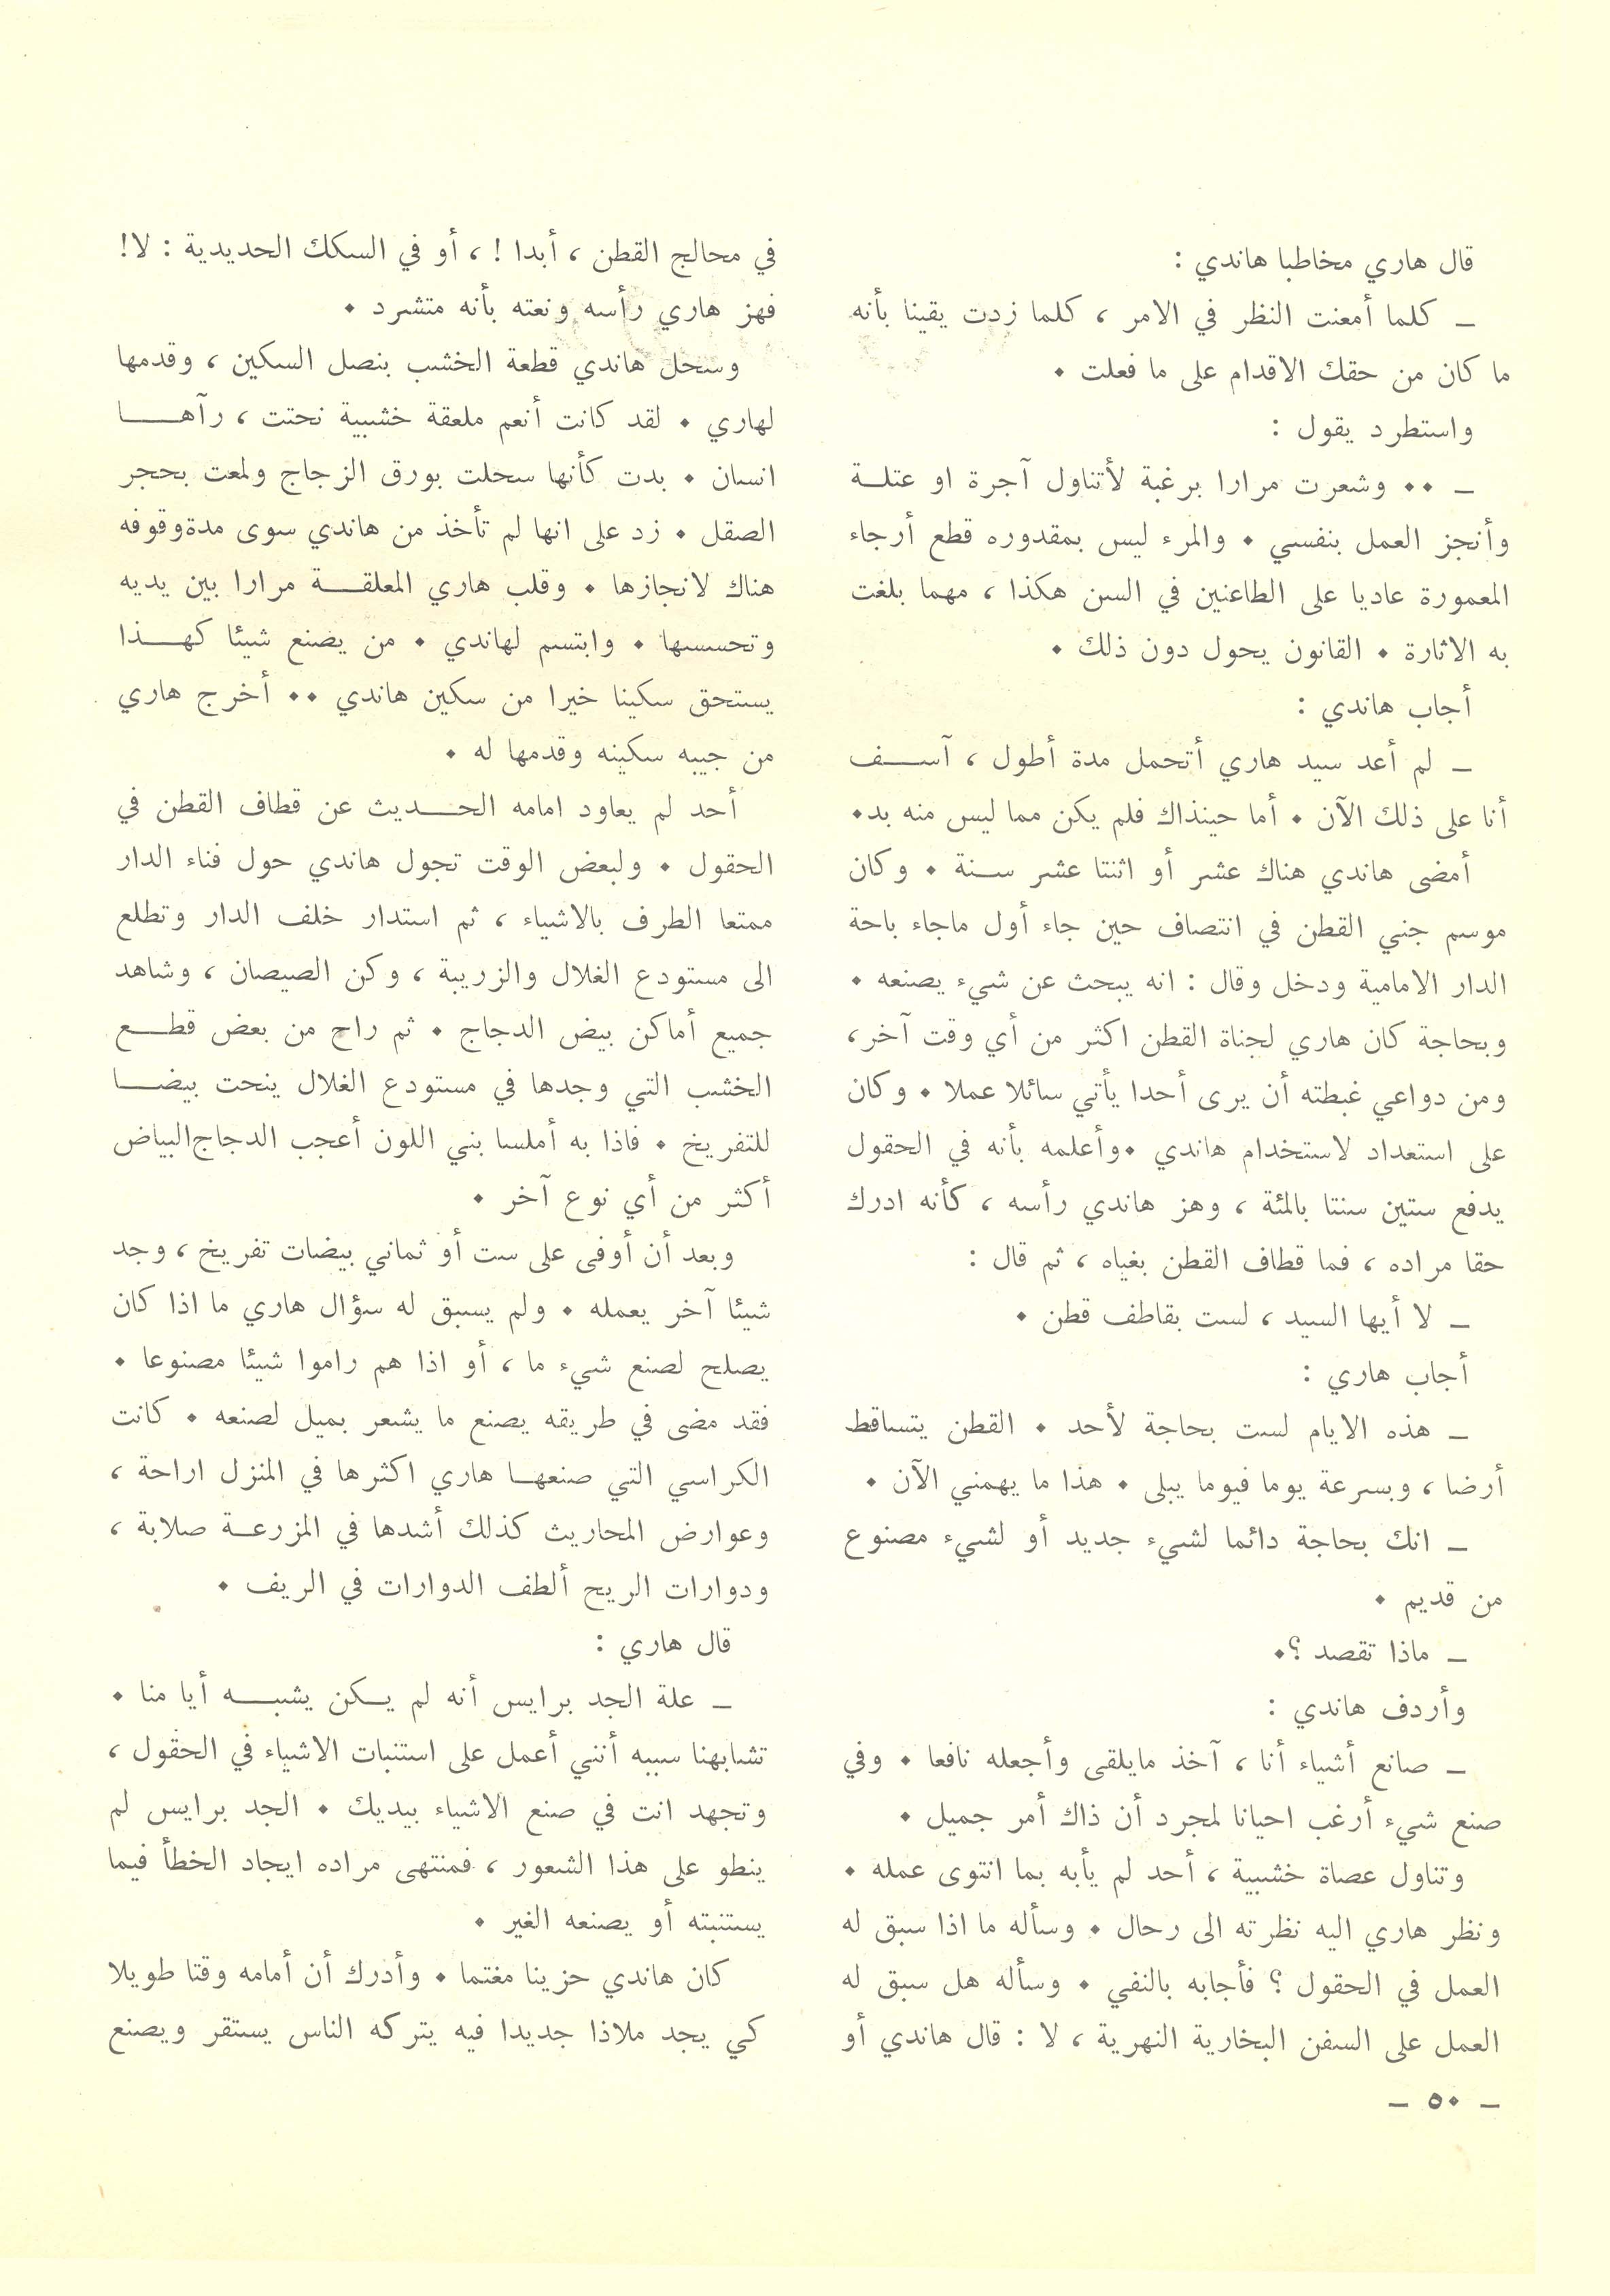 قال هاري مخاطبا هاندي :
ـ كلما أمعنت النظر في الامر ، كلما زدت يقينا بأنه
ما كان من حقك الاقدام على ما فعلت ٠
واستطرد يقول :
ـ ٠٠ وشعرت مرارا برغبة لأتناول آجرة او عتلة
وأنجز العمل بنفسي ٠ والمرء ليس بمقدوره قطع أرجاء
المعمورة عاديا على الطاعنين في السن هكذا ، مهما بلغت
به الاثارة ٠ القانون يحول دون ذلك ٠
أجاب هاندي :
ـ لم أعد سيد هاري أتحمل مدة أطول ، آسف
أنا على ذلك الآن ٠ أما حينذاك فلم يكن مما ليس منه بد٠
أمضى هاندي هناك عشر أو اثنتا عشر سنة ٠ وكان
موسم جني القطن في انتصاف حين جاء أول ماجاء باحة
الدار الامامية ودخل وقال : انه يبحث عن شيء يصنعه ٠
وبحاجة كان هاري لجناة القطن اكثر من أي وقت آخر،
ومن دواعي غبطته أن يرى أحدا يأتي سائلا عملا ٠ وكان
على استعداد لاستخدام هاندي ٠وأعلمه بأنه في الحقول
يدفع ستين سنتا بالمئة ، وهز هاندي رأسه ، كأنه ادرك
حقا مراده ، فما قطاف القطن بغياه ، ثم قال :
ـ لا أيها السيد ، لست بقاطف قطن ٠
أجاب هاري :
ـ هذه الايام لست بحاجة لأحد ٠ القطن يتساقط
أرضا ، وبسرعة يوما فيوما يبلى ٠ هذا ما يهمني الآن ٠
ـ انك بحاجة دائما لشيء جديد أو لشيء مصنوع
من قديم ٠
ـ ماذا تقصد ؟٠
وأردف هاندي :
ـ صانع أشياء أنا ، آخذ مايلقى وأجعله نافعا ٠ وفي
صنع شيء أرغب احيانا لمجرد أن ذاك أمر جميل ٠
وتناول عصاة خشبية ، أحد لم يأبه بما انتوى عمله ٠
ونظر هاري اليه نظرته الى رحال ٠ وسأله ما اذا سبق له
العمل في الحقول ؟ فأجابه بالنفي ٠ وسأله هل سبق له
العمل على السفن البخارية النهرية ، لا : قال هاندي أو
في محالج القطن ، أبدا ! ، أو في السكك الحديدية : لا!
فهز هاري رأسه ونعته بأنه متشرد ٠
وسحل هاندي قطعة الخشب بنصل السكين ، وقدمها
لهاري ٠ لقد كانت أنعم ملعقة خشبية نحتت ، رآها
انسان ٠ بدت كأنها سحلت بورق الزجاج ولمعت بحجر
الصقل ٠ زد على انها لم تأخذ من هاندي سوى مدةوقوفه
هناك لانجازها ٠ وقلب هاري المعلقة مرارا بين يديه
وتحسسها ٠ وابتسم لهاندي ٠ من يصنع شيئا كهذا
يستحق سكينا خيرا من سكين هاندي ٠٠ أخرج هاري
من جيبه سكينه وقدمها له ٠
أحد لم يعاود امامه الحديث عن قطاف القطن في
الحقول ٠ ولبعض الوقت تجول هاندي حول فناء الدار
ممتعا الطرف بالاشياء ، ثم استدار خلف الدار وتطلع
الى مستودع الغلال والزريبة ، وكن الصيصان ، وشاهد
جميع أماكن بيض الدجاج ٠ ثم راح من بعض قطع
الخشب التي وجدها في مستودع الغلال ينحت بيضا
للتفريخ ٠ فاذا به أملسا بني اللون أعجب الدجاج البياض
أكثر من أي نوع آخر ٠
وبعد أن أوفى على ست أو ثماني بيضات تفريخ ، وجد
شيئا آخر يعمله ٠ ولم يسبق له سؤال هاري ما اذا كان
يصلح لصنع شيء ما ، أو اذا هم راموا شيئا مصنوعا ٠
فقد مضى في طريقه يصنع ما يشعر بميل لصنعه ٠ كانت
الكراسي التي صنعها هاري اكثرها في المنزل اراحة ،
وعوارض المحاريث كذلك أشدها في المزرعة صلابة ،
ودوارات الريح ألطف الدوارات في الريف ٠
قال هاري :
ـ علة الجد برايس أنه لم يكن يشبه أيا منا ٠
تشابهنا سببه أنني أعمل على استنبات الاشياء في الحقول ،
وتجهد انت في صنع الاشياء بيديك ٠ الجد برايس لم
ينطو على هذا الشعور ، فمنتهى مراده ايجاد الخطأ فيما
يستنبته أو يصنعه الغير ٠
كان هاندي حزينا مغتما ٠ وأدرك أن أمامه وقتا طويلا
كي يجد ملاذا جديدا فيه يتركه الناس يستقر ويصنع
ـ ٥٠ ـ